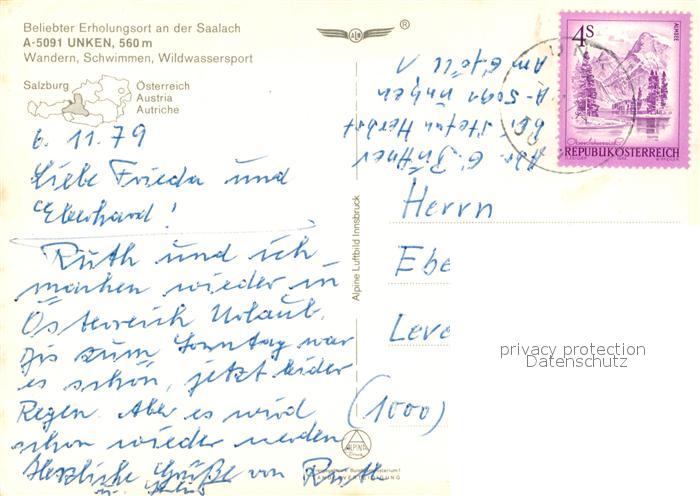 Beliebter Erholungsort an der Saalach
A-5091 UNKEN, 560 m
Wandern, Schwimmen, Wildwassersport
Salzburg
Österreich
Austria
Autriche
6. 11. 79
Liebe Frieda und
Eberhard!
Ruth und ich
machen wieder in
Österreich Urlaub.
Bis zum Sonntag war
es schön, jetzt leider
Regen. Aber es wird
schon wieder werden
Herzliche Grüße von Ruth
u.
Alpine Luftbild Innsbruck
ALM
®
Adr. G. Büttner
bei Stefan Herbst
A-5091 Unken
Am
4 S
ALMSEE
REPUBLIK ÖSTERREICH
Herrn
Ebe
Leve
(1000)
privacy protection
Datenschutz
ALPINE